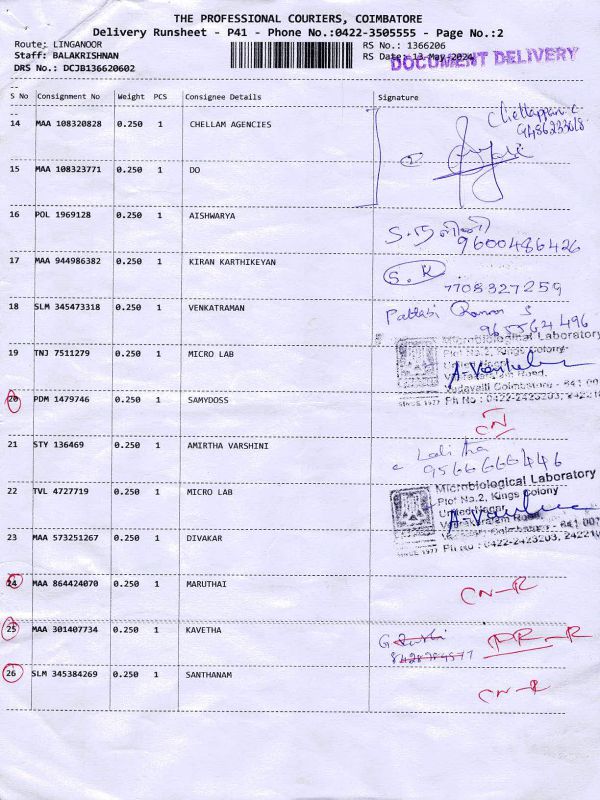 THE PROFESSIONAL COURIERS, COIMBATORE
Delivery Runsheet - P41 - Phone No.:0422-3505555 - Page No.:2
Route: LINGANOOR RS No.: 1366206
Staff: BALAKRISHNAN RS Date: 13-May-2024
DRS No.: DCJB136620602
DOCUMENT DELIVERY
--
S No Consignment No Weight PCS Consignee Details Signature
--
Chellappan c
9486233618
14 MAA 108320828 0.250 1 CHELLAM AGENCIES
15 MAA 108323771 0.250 1 DO
16 POL 1969128 0.250 1 AISHWARYA
9600486426
17 MAA 944986382 0.250 1 KIRAN KARTHIKEYAN S.K
7708327259
18 SLM 345473318 0.250 1 VENKATRAMAN Pattabi Raman S
9655624496
19 TNJ 7511279 0.250 1 MICRO LAB
Microbiological Laboratory
Plot No.2, Kings Colony
Vadavalli Coimbatore - 641 0
SINCE 1977 Ph No : 0422-2423203, 24221
20 PDM 1479746 0.250 1 SAMYDOSS
CN
21 STY 136469 0.250 1 AMIRTHA VARSHINI Lalitha
9566666446
22 TVL 4727719 0.250 1 MICRO LAB
Microbiological Laboratory
Plot No.2, Kings Colony
United Nagar
Veerakeralam Road,
Coimbatore - 641 007
SINCE 1977 Ph No : 0422-2423203, 24221
23 MAA 573251267 0.250 1 DIVAKAR
24 MAA 864424070 0.250 1 MARUTHAI CN-R
25 MAA 301407734 0.250 1 KAVETHA
26 SLM 345384269 0.250 1 SANTHANAM CN-R